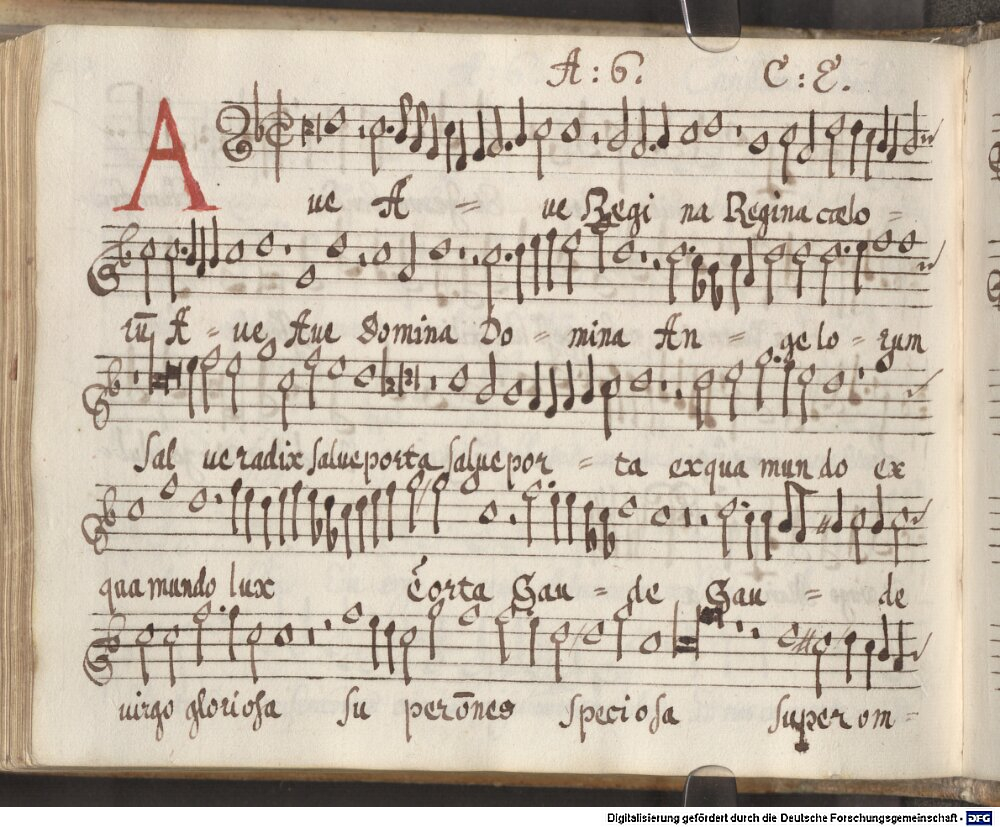 A : 6. C : E.
A ve A = ve Regi na Regina cælo =
rū A = ve Ave Domina Do = mina An = gelo = rum
Sal ve radix salve porta salve por = ta ex qua mundo ex
qua mundo lux Ēorta Gau = de Gau = de
virgo gloriosa su per ōnes speciosa super om =
Digitalisierung gefördert durch die Deutsche Forschungsgemeinschaft - DFG